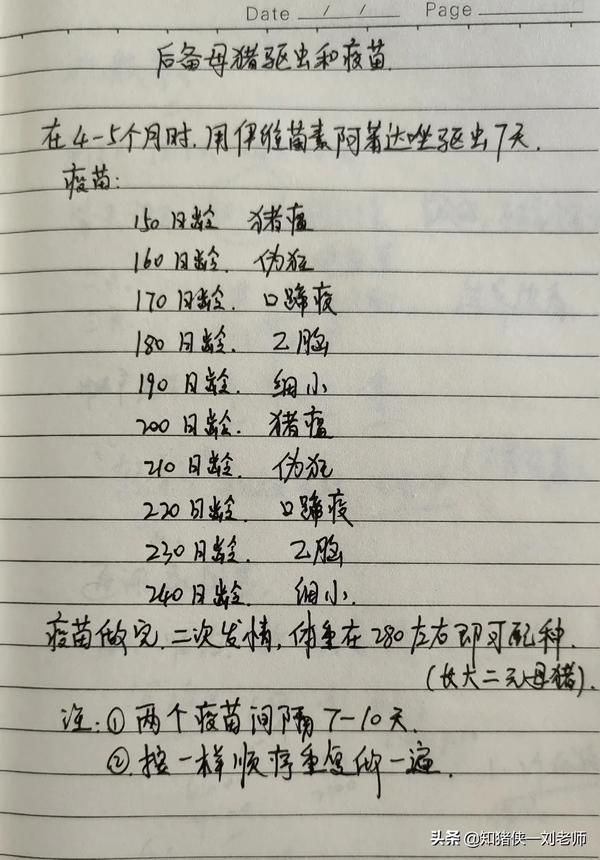 Date / / Page
后备母猪驱虫和疫苗.
在4-5个月时.用伊维菌素阿苯达唑驱虫7天.
疫苗:
150日龄 猪瘟
160日龄. 伪狂
170日龄. 口蹄疫
180日龄. 乙脑
190日龄. 细小
200日龄. 猪瘟
210日龄. 伪狂
220日龄. 口蹄疫
230日龄. 乙脑
240日龄. 细小.
疫苗做完.二次发情,体重在280左右即可配种.
(长大二元母猪).
注:①两个疫苗间隔7-10天.
②.按一样顺序重复做一遍.
头条 @知猪侠一刘老师